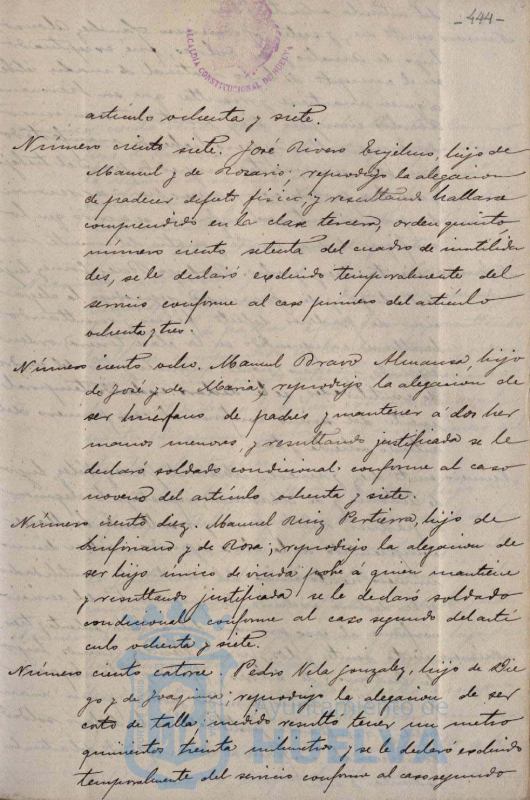 -444-
ALCALDIA CONSTITUCIONAL DE HUELVA
artículo ochenta y siete.
Número ciento siete. José Rivero, hijo de
Manuel y de Rosario; reprodujo la alegacion
de padecer defecto físico, y resultando hallarse
comprendido en la clase tercera, orden quinto
número ciento setenta del cuadro de inutilida
des, se le declaró excluido temporalmente del
servicio conforme al caso primero del artículo
ochenta y tres.
Número ciento ocho. Manuel Bravo Almansa, hijo
de José y de Maria, reprodujo la alegacion de
ser huérfano de padres y mantener a dos her
manos menores, y resultando justificada se le
declaró soldado condicional conforme al caso
noveno del artículo ochenta y siete.
Número ciento diez. Manuel Ruiz Pertierra, hijo de
y de Rosa; reprodujo la alegacion de
ser hijo unico de viuda pobre a quien mantiene
y resultando justificada se le declaró soldado
condicional conforme al caso segundo del artí
culo ochenta y siete.
Número ciento catorce. Pedro Vela Gonzalez, hijo de Die
go y de Joaquina; reprodujo la alegacion de ser
corto de talla: medido resultó tener un metro
quinientos treinta milimetros y se le declaró excluido
temporalmente del servicio conforme al caso segundo
Ayuntamiento de
HUELVA